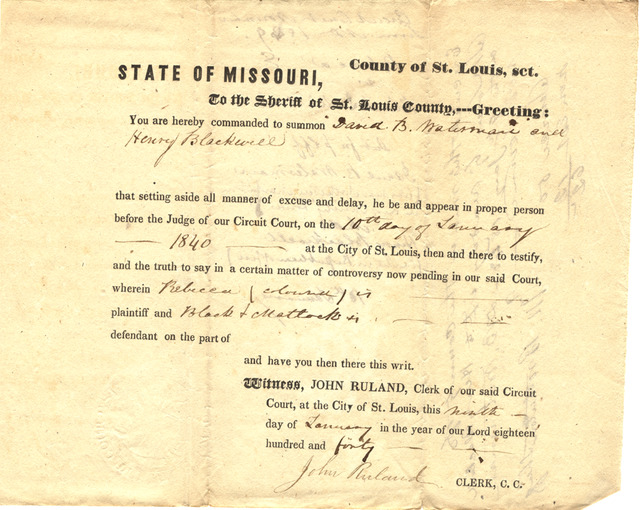 County of St. Louis, sct.
STATE OF MISSOURI,
To the Sheriff of St. Louis County,---Greeting:
You are hereby commanded to summon David B. Waterman and
Henry Blackwell
that setting aside all manner of excuse and delay, he be and appear in proper person
before the Judge of our Circuit Court, on the 10th day of January
— 1840 — at the City of St. Louis, then and there to testify,
and the truth to say in a certain matter of controversy now pending in our said Court,
wherein Rebecca ( ) is
plaintiff and Black & Mattock is
defendant on the part of
and have you then there this writ.
Witness, JOHN RULAND, Clerk of our said Circuit
Court, at the City of St. Louis, this ninth —
day of January in the year of our Lord eighteen
hundred and forty —
John Ruland CLERK, C. C.